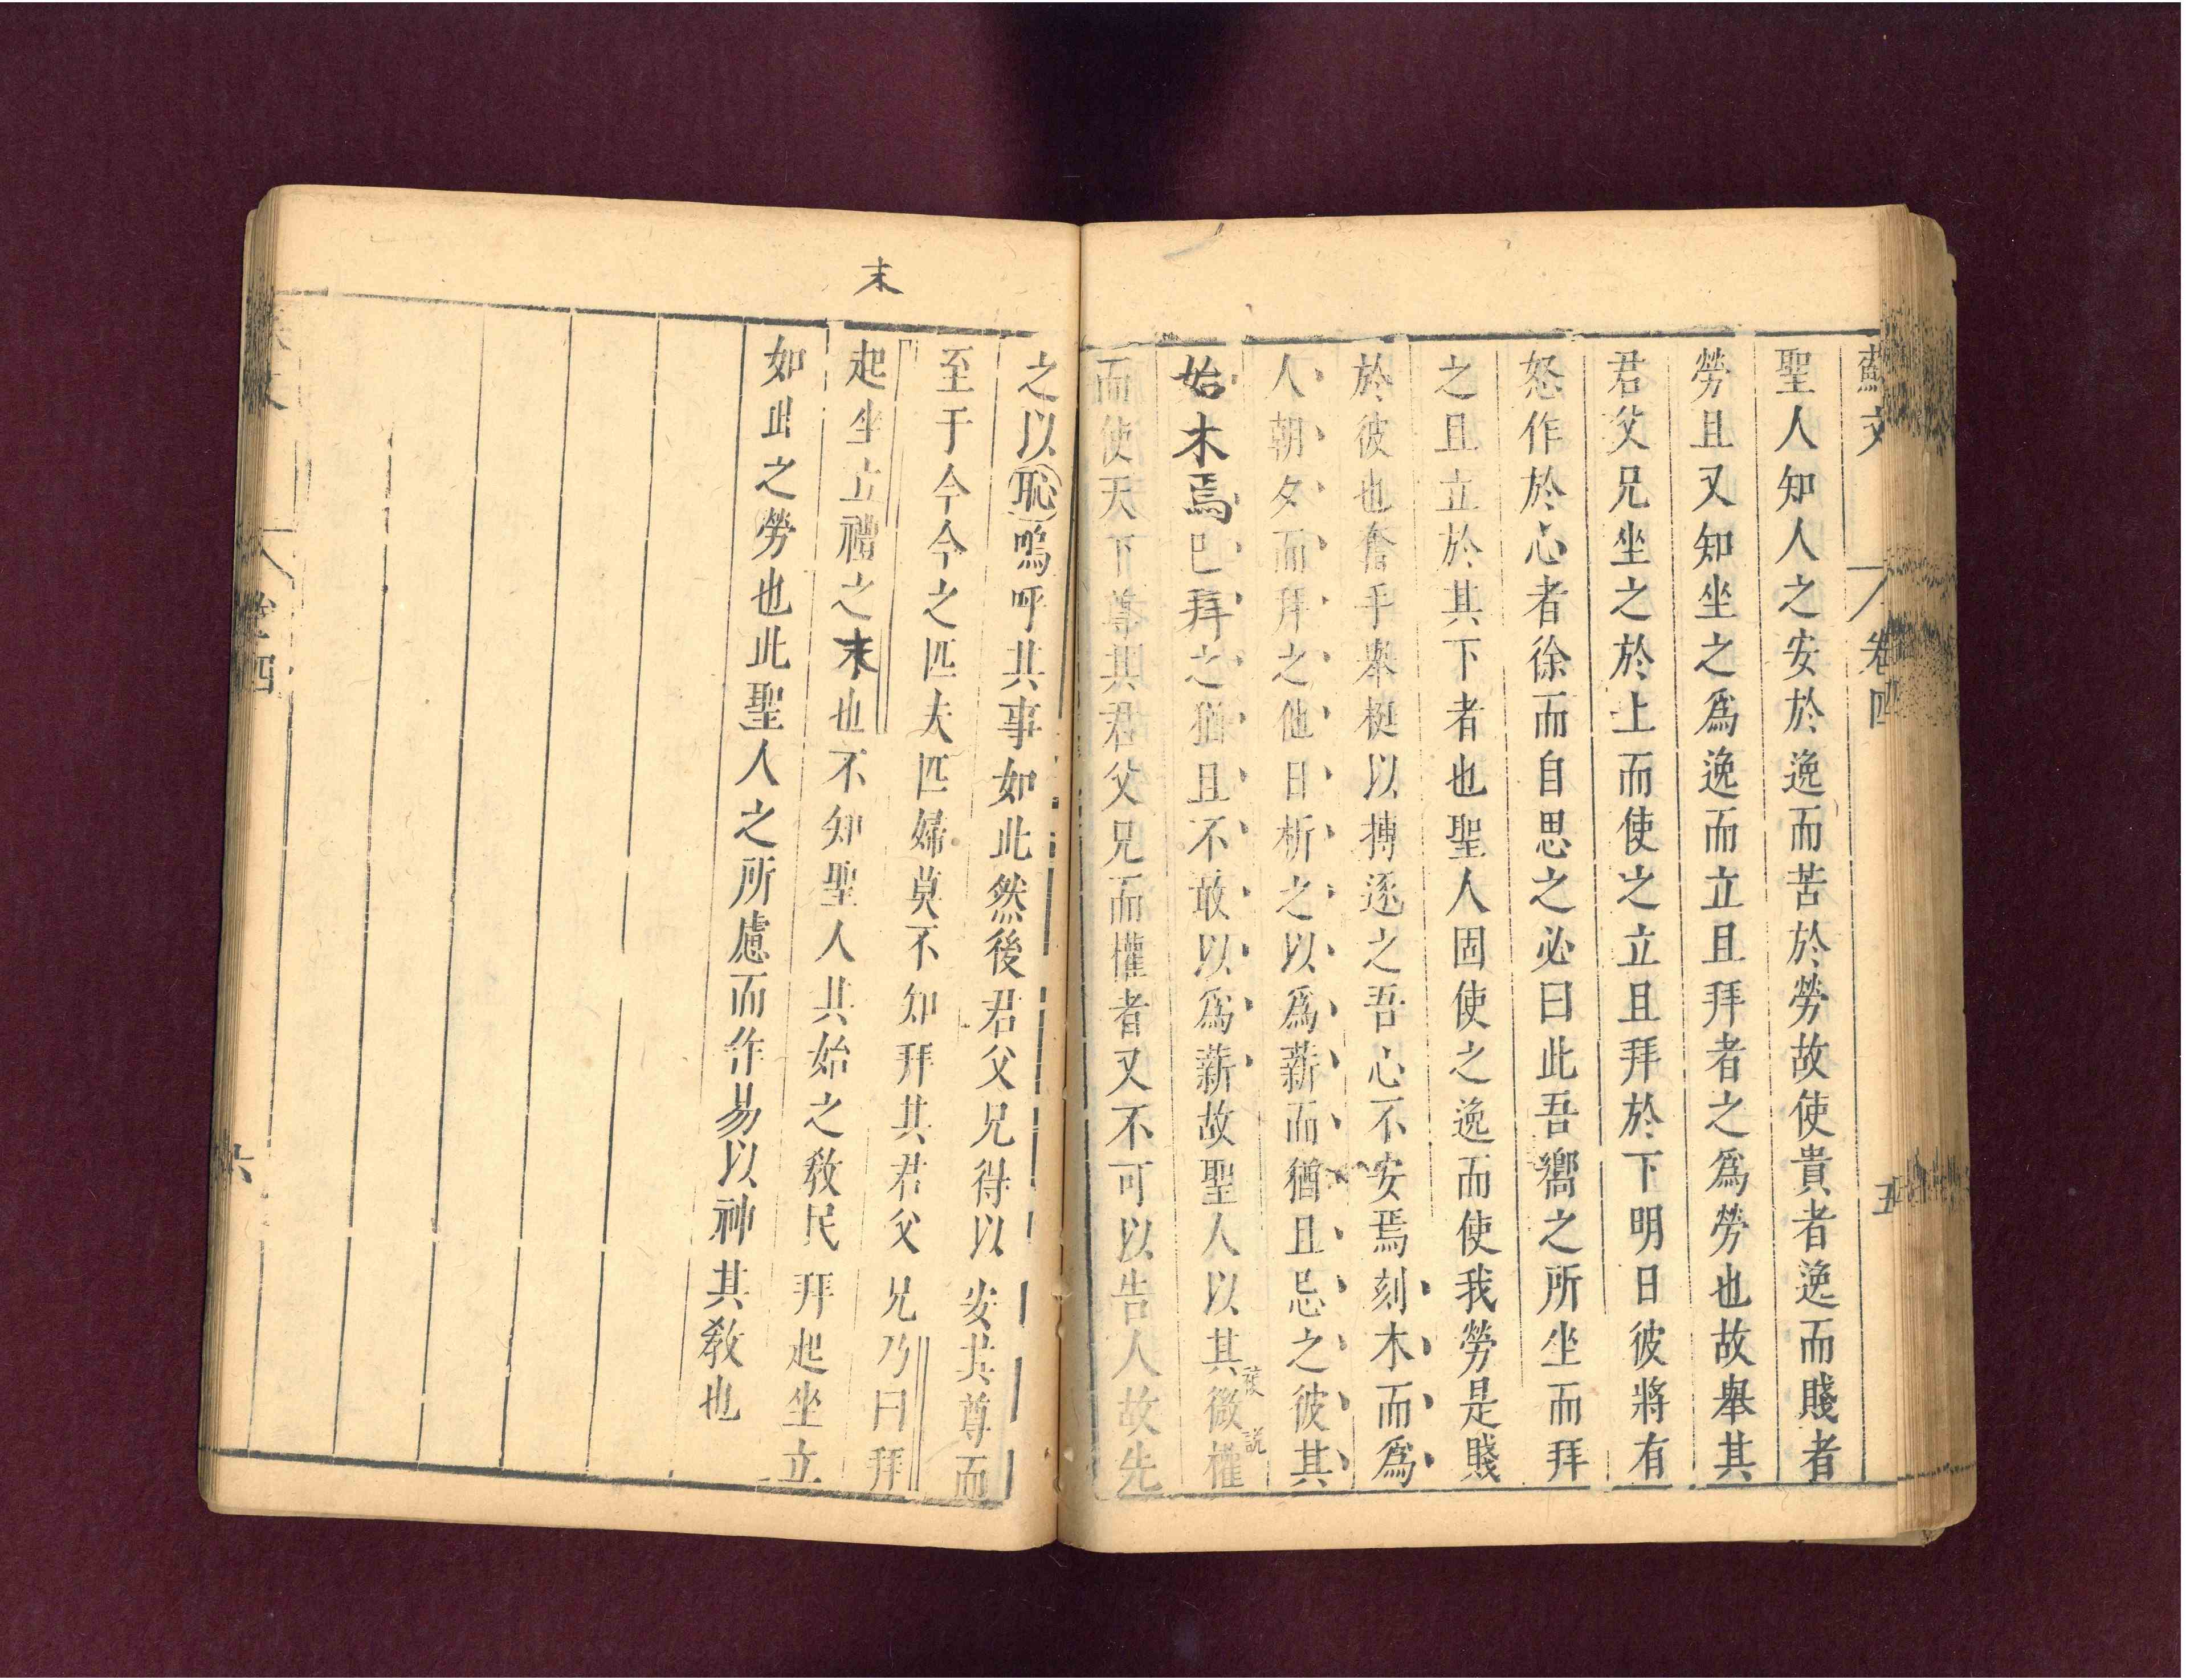 蘇文 卷四 五
聖人知人之安於逸而苦於勞故使貴者逸而賤者
勞且又知坐之爲逸而立且拜者之爲勞也故舉其
君父兄坐之於上而使之立且拜於下明日彼將有
怒作於心者徐而自思之必曰此吾嚮之所坐而拜
之且立於其下者也聖人固使之逸而使我勞是賤
於彼也奮手舉梃以搏逐之吾心不安焉刻木而爲
人朝夕而拜之他日析之以爲薪而猶且忌之彼其
始木焉已拜之猶且不敢以爲薪故聖人以其微權
而使天下尊其君父兄而權者又不可以告人故先
之以恥嗚呼其事如此然後君父兄得以安其尊而
至于今今之匹夫匹婦莫不知拜其君父兄乃曰拜
末
起坐立禮之末也不知聖人其始之敎民拜起坐立
如此之勞也此聖人之所慮而作易以神其敎也
卷四 六